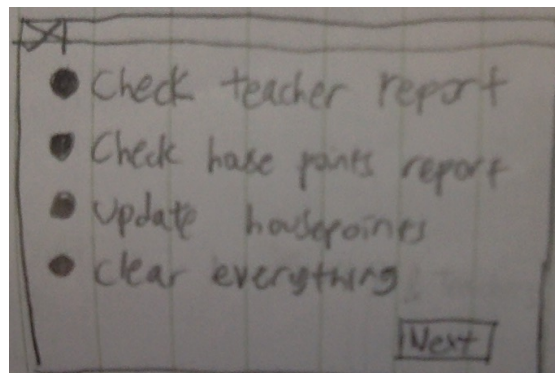 Check teacher report
Check house points report
Update housepoints
Clear everything
Next